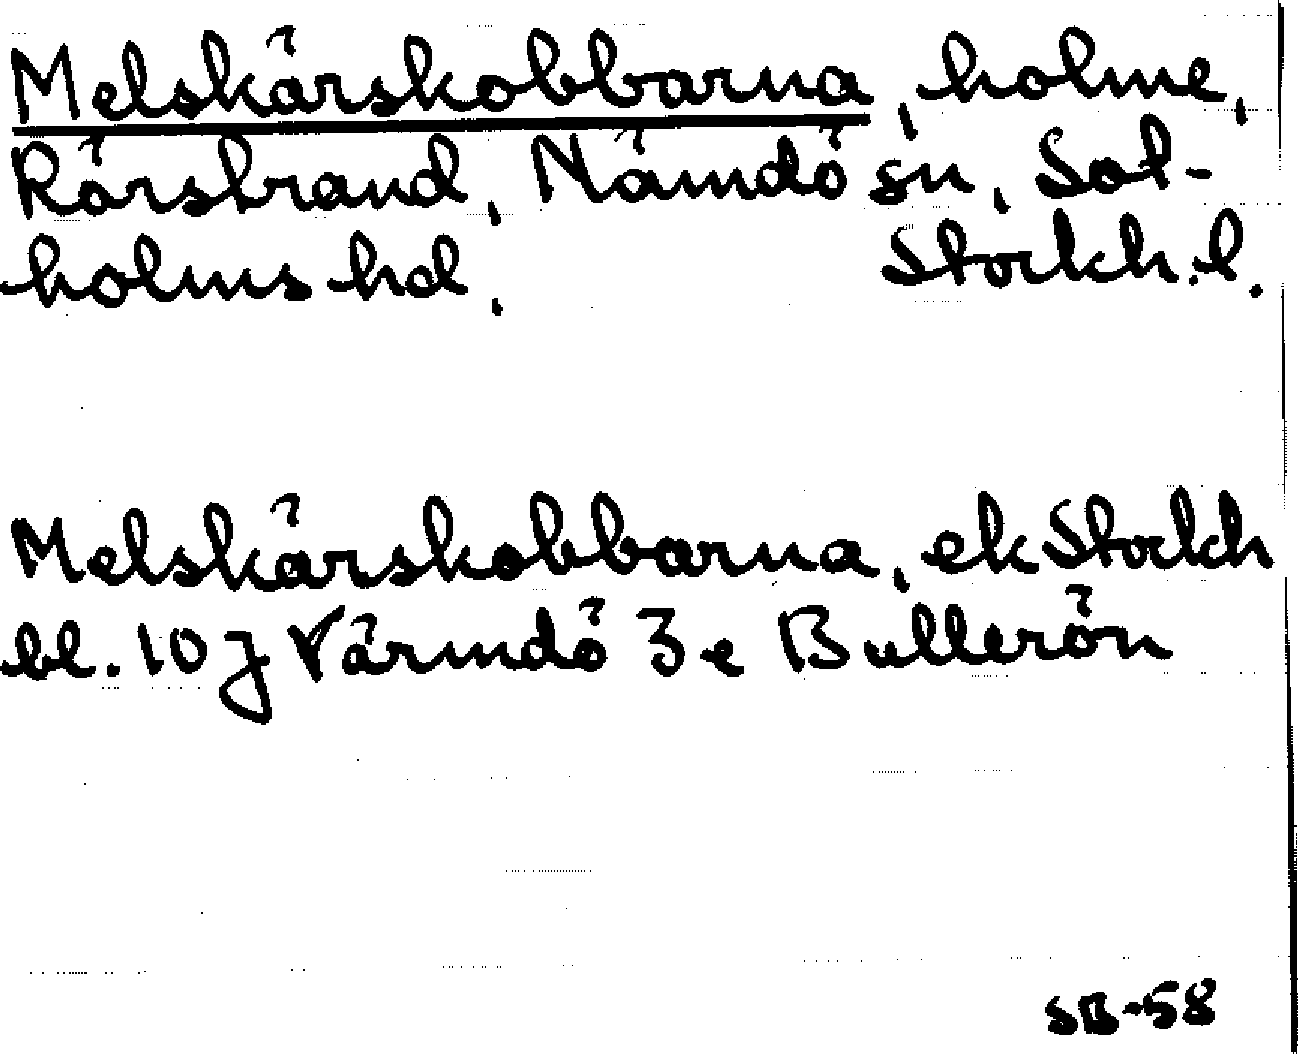 Melskärskobbarna, holme,
Rörsbrand, Nämdö sn, Sot-
holms hd. Stockh. l.
Melskärskobbarna, ek Stockh
bl. 10 J Värmdö 3 e Bullerön
SB-58